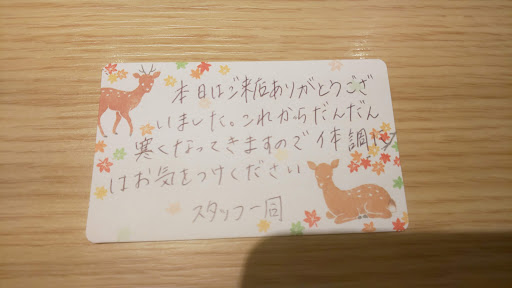 本日はご来店ありがとうござ
いました。これからだんだん
寒くなってきますので体調に
はお気をつけください
スタッフ一同